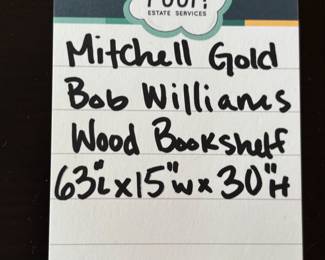 ESTATE SERVICES
Mitchell Gold
Bob Williams
Wood Bookshelf
63"L x 15"W x 30"H